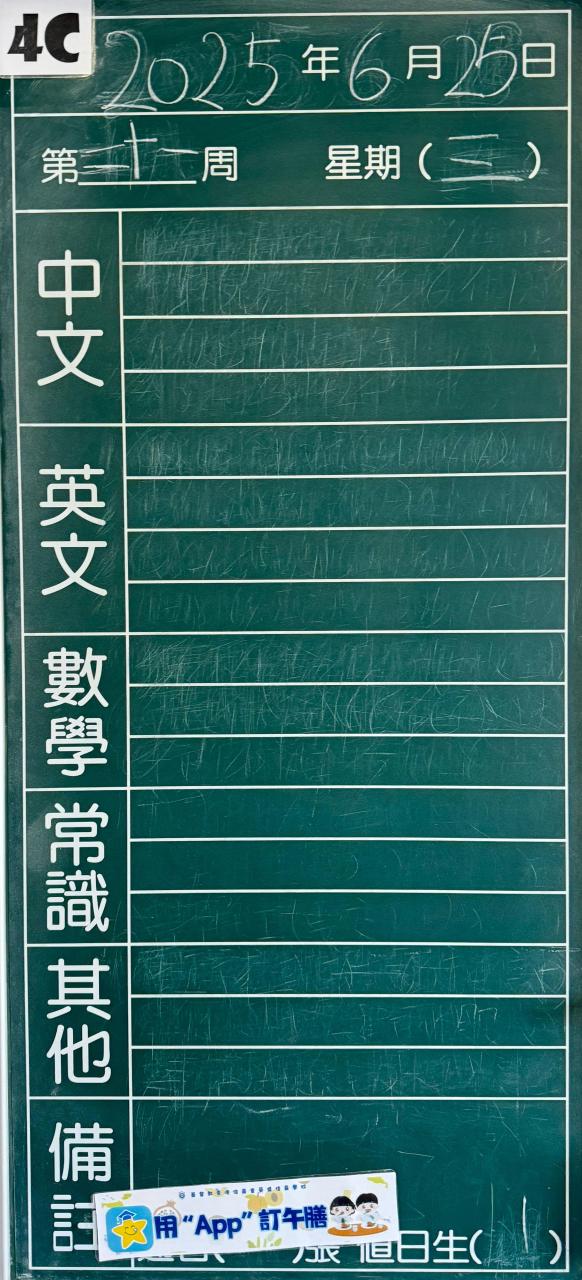 4C
2025年6月25日
第三十一周 星期(三)
中文
英文
數學
常識
其他
備註
用“App”訂午膳
張 值日生( )